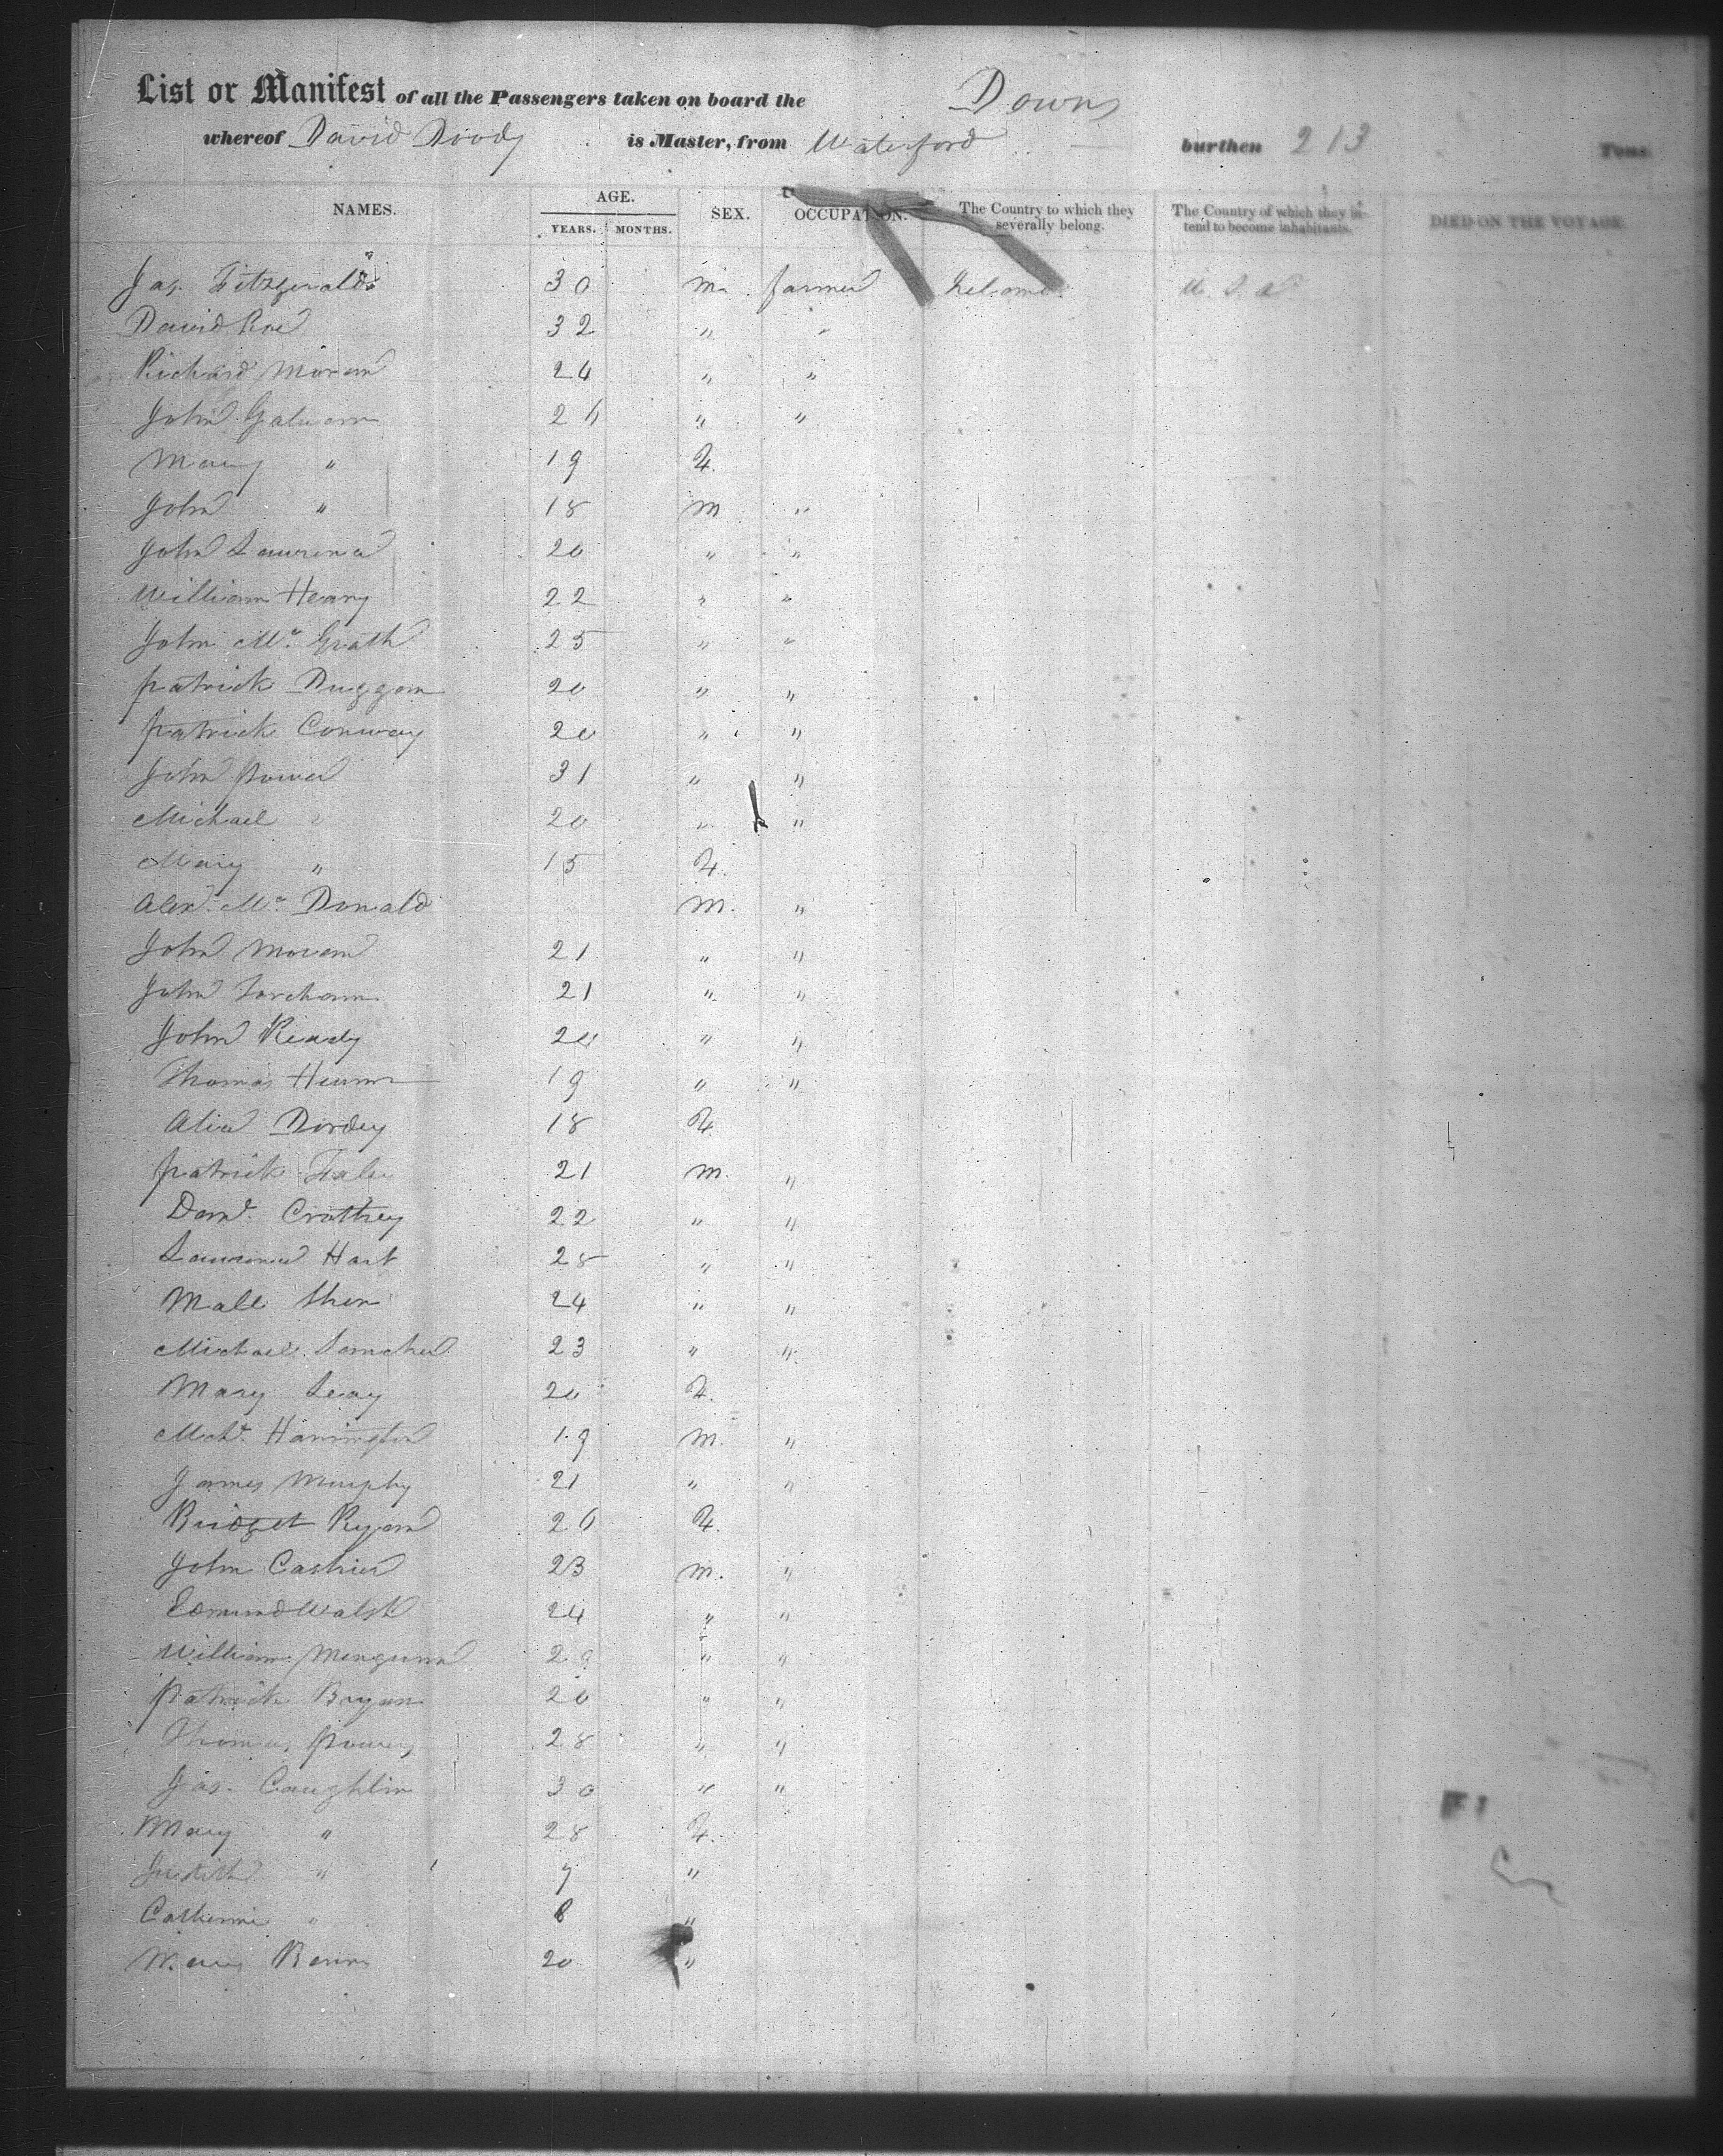 List or Manifest of all the Passengers taken on board the Down
whereof David Doody is Master, from Waterford burthen 213 Tons.
NAMES. AGE. YEARS. MONTHS. SEX. OCCUPATION. The Country to which they severally belong. The Country of which they intend to become inhabitants. DIED ON THE VOYAGE.
Jas. Fitzgerald 30 m farmer Ireland U. S. A
David Roe 32 " "
Richard Moran 24 " "
John 26 " "
Mary " 19 F.
John " 18 m "
John Lawrence 20 " "
William Heany 22 " "
John Mc Grath 25 " "
patrick Duggan 20 " "
patrick Conway 20 " "
John power 31 " "
Michael " 20 " "
Mary " 15 F.
Alex. Mc Donald m. "
John Moran 21 " "
John 21 " "
John Ready 20 " "
Thomas 19 " "
Alice 18 F.
patrick 21 m. "
22 " "
Lawrence Hart 28 " "
24 " "
Michael 23 " "
Mary Leay 20 F.
Mich. Harrington 19 m. "
James Murphy 21 " "
Bridget Ryan 26 F.
John Cashier 23 m. "
Edmund Walsh 24 " "
William 29 " "
patrick Bryan 20 " "
Thomas power 28 " "
Jas. Caughlin 30 " "
Mary " 28 F.
Judith " 9 "
Catherine " 8 "
Mary 20 "